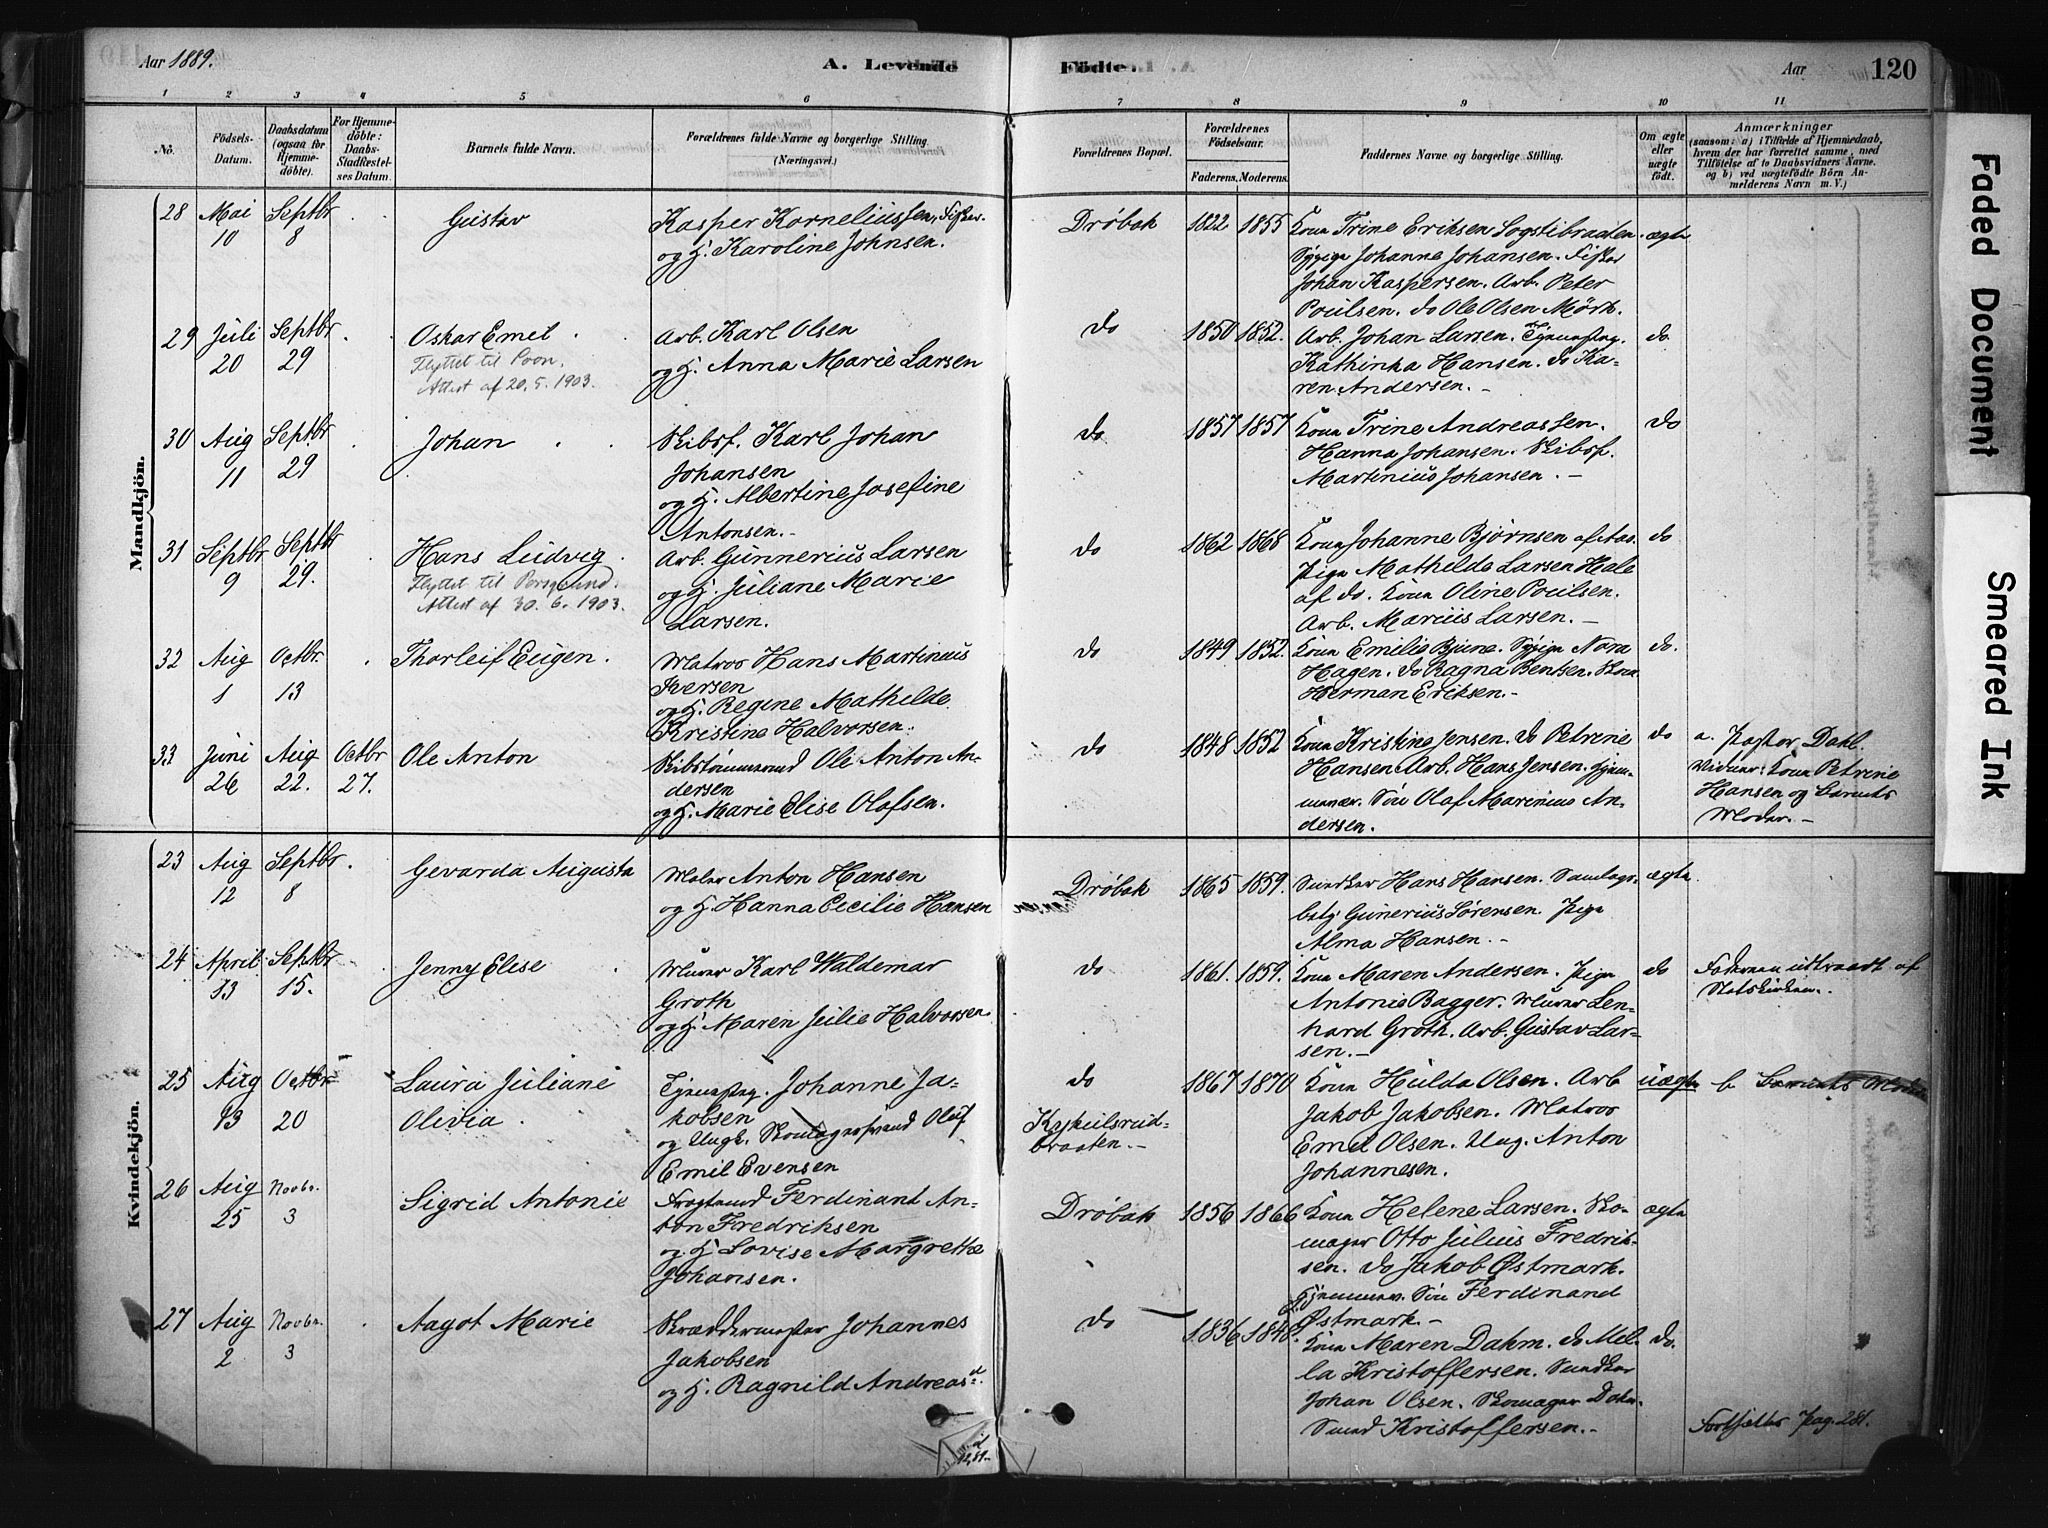 Aar 1889. A. Levende Fødte. Aar 120
1 2 3 4 5 6 7 8 9 10 11
No. Fødsels-Datum. Daabsdatum (ogsaa for Hjemmedöbte). For Hjemmedöbte: Daabs-Stadfæstelses Datum. Barnets fulde Navn. Forældrenes fulde Navne og borgerlige Stilling. (Næringsvei.) Forældrenes Bopæl. Forældrenes Fødselsaar. Faderens. Moderens. Faddernes Navne og borgerlige Stilling. Om ægte eller uægte født. Anmærkninger (saasom: a) i Tilfælde af Hjemmedaab, hvem der har forrettet samme, med Tilföielse af to Daabsvidners Navne. og b) ved uægtefödte Börn Anmelderens Navn m. V.)
Mandkjön.
28 Mai 10 Septbr 8 Gustav
Kasper Korneliussen, Fisker.
og H. Karoline Johnsen.
Drøbak 1822 1855
Kona Trine Eriksen Sogstibraaten. ægte
Sypiga Johanne Johansen. Fisker
Johan Kaspersen. Arb. Peter
Poulsen. do Ole Olsen Mørk.
29 Juli 20 Septbr 29 Oskar Emil.
Flyttet til
Attest af 20.5.1903.
Arb. Karl Olsen
og H. Anna Marie Larsen
do 1850 1852.
Arb. Johan Larsen. Tjenestpg. do.
Kathinka Hansen. do Ka-
ren Andersen. –
30 Aug 11 Septbr 29 Johan
Skibsf. Karl Johan
Johansen
og H. Albertine Josefine
Antonsen.–
do 1857 1857
Kona Trine Andreassen. do
Hanna Johansen. Skibsf.
Martinius Johansen. –
31 Septbr 9 Septbr 29. Hans Ludvig.
Flyttet til Porsgrund.
Attest af 30.6.1903.
Arb. Gunnerius Larsen
og H. Juliane Marie
Larsen.
do 1862 1868
Kona Johanne Bjørnsen af Aas. do
Piga Mathilde Larsen Hale
af do. Kona Oline Poulsen.
Arb. Marius Larsen. –
32 Aug 1 Octbr. 13 Thorleif Eugen.
Matros Hans Martinius
Iversen
og H. Regine Mathilde
Kristine Halvorsen.
do 1849 1852.
Kona Emilie Sypiga Nora do.
Hagen. do Ragna Bentsen.
Herman Eriksen.–
33 Juni 26 Aug 22. Octbr 27. Ole Anton
Skibstømmermand Ole Anton An-
dersen
og H. Marie Elise Olafsen.
do 1848 1852
Kona Kristine Jensen. do Petrine do
Hansen Arb. Hans Jensen. Hjem-
menær. Søn Olaf Marinius An-
dersen.
a. Pastor Dahl.
Vidner: Kona Petrine
Hansen og Barnets
Moder.–
Kvindekjön.
23 Aug 12 Septbr 8. Gevarda Augusta
Maler Anton Hansen
og H. Hanna Cecilie Hansen
Drøbak 1865 1859.
Snedker Hans Hansen. Samlags- ægte
bstj. Gunerius Sørensen. Piga
Alma Hansen. –
24 April 13 Septbr 15. Jenny Elise
Murer Karl Waldemar
Groth
og H. Maren Julie Halvorsen
do 1861. 1859.
Kona Maren Andersen. Piga do
Antonie Bagger. Murer Len-
hard Groth. Arb. Gustav Lar-
sen.–
Faderen udtraadt af
Statskirken.
25 Aug 13 Octbr 20 Laura Juliane
Olivia.
Tjenestpg. Johanne Ja-
kobsen
og Ungk. Skomagersvend Olaf
Emil Evensen
do
Kykeilsrud-
braaten.–
1867 1870
Kona Hulda Olsen. Arb uægte
Jakob Jakobsen. Matros
Emil Olsen. Ung. Anton
Johannesen.
b. Barnets Moder
26 Aug 25 Novbr. 3 Sigrid Antonie
Fragtmand Ferdinant An-
ton Fredriksen
og H. Lovise Margrethe
Johansen.
Drøbak 1856 1866
Kona Helene Larsen. Sko- ægte
mager Otto Julius Fredrik-
sen. do Jakob Østmark.
Hjemmev. Søn Ferdinand
Østmark.–
27 Aug 2 Novbr. 3 Aagot Marie
Skræddermester Johannes
Jakobsen
og H. Ragnild Andreasd.
do 1836 1848.
Kona Maren Dahm. do Mil- do.
la Kristoffersen. Snedker
Johan Olsen. Skomager Dahm.
Svend Kristoffersen.–
Fortsættes Pag. 281.
Faded Document
Smeared Ink